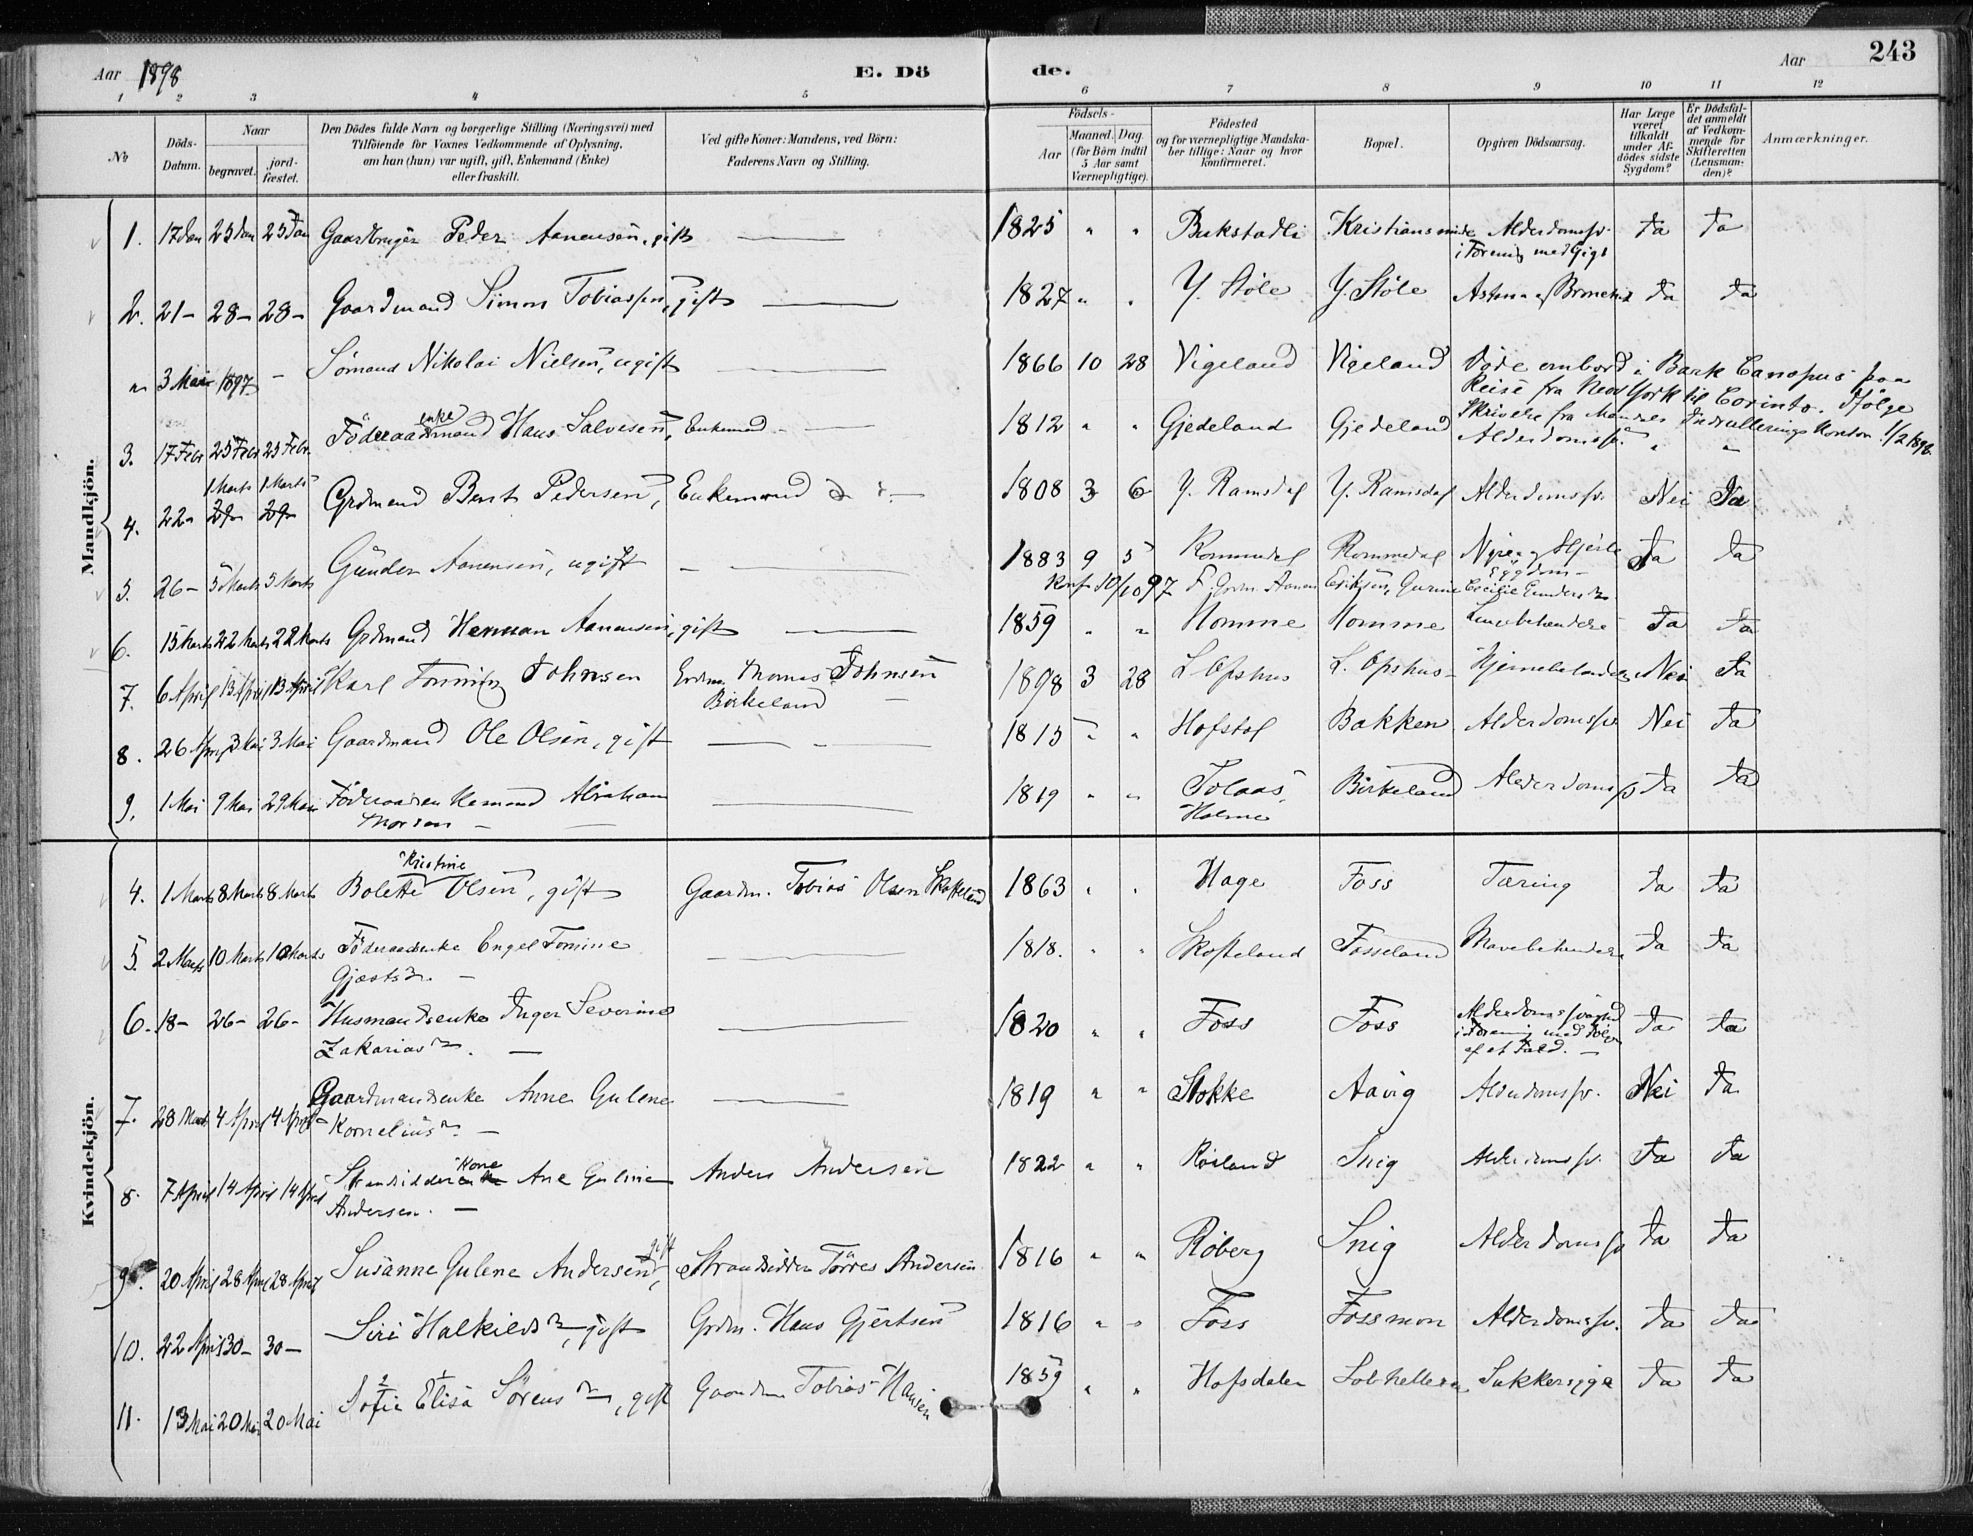 Aar 1898 E. Dö de. Aar 243
1 2 3 4 5 6 7 8 9 10 11 12
No
Döds-Datum.
Naar
begravet.
jord-fæstet.
Den Dödes fulde Navn og borgerlige Stilling (Næringsvei) med
Tilföiende for Voxnes Vedkommende af Oplysning,
om han (hun) var ugift, gift, Enkemand (Enke)
eller fraskilt.
Ved gifte Koner: Mandens, ved Börn:
Faderens Navn og Stilling.
Födsels-
Aar
Maaned. Dag.
(for Börn indtil
5 Aar samt
Værnepligtige).
Födested
og for værnepligtige Mandska-
ber tillige: Naar og hvor
konfirmeret.
Bopæl.
Opgiven Dödsaarsag.
Har Læge
været
tilkaldt
under Af-
dödes sidste
Sygdom?
Er Dödsfal-
det anmeldt
af Vedkom-
mende for
Skifteretten
(Lensman-
den)?
Anmærkninger.
Mandkjön.
1. 17 Jan 25 Jan 25 Jan Gaardbruger Peder Aanensen, gift — 1825 " " Bukstadli Kristiansminde Alderdomssv. Ja Ja
i Forening med Gigt
2. 21 - 28 - 28 - Gaardmand Simon Tobiassen, gift — 1827 " " Y. Støle Y. Støle Astma og Ja Ja
" 3 Mai 1897 - Sømand Nikolai Nielsen, ugift — 1866 10 28 Vigeland Vigeland Døde ombord i Bark Canopus paa
Reise fra New York til Corinto. Ifølge
Skrivelse fra Mandals Indrulleringskontor 1/2 1898.
3. 17 Febr 25 Febr 25 Febr. Föderaadsmand Hans Salvesen, Enkemd — 1812 " " Gjedeland Gjedeland Alderdomssv. " "
1 Marts 1 Marts
4. 22 - Grdmand Bent Pedersen, Enkemand — 1808 3 6 Y. Ramsdal Y. Ramsdal Alderdomssv. Nei Ja
5. 26 - 5 Marts 5 Marts Gunder Aanensen, ugift — 1883 9 5 Rommedal Rommedal Nyre og Hjerte Ja Ja
Sygdom -
Konf 10/10 97 F. Grdm. Aanen Eriksen, Gurine Cecilie Gundersdr
6. 15 Marts 22 Marts 22 Marts Grdmand Herman Aanensen, gift — 1859 " " Homme Homme Lungebetændelse Ja Ja
7. 6 April 13 April 13 April Karl Tomin Johnsen Grdm. Thomas Johnsen 1898 3 28 L. Opshus L. Opshus - Hjernebetændelse Nei Ja
Birkeland
8. 26 April 3 Mai 3 Mai Gaardmand Ole Olsen, gift — 1815 " " Hofstøl Bakken Alderdomssv. Nei Ja
9. 1 Mai 9 Mai 29 Mai Föderaadsenkemand Abraham — 1819 " " Tolaas, Birkeland Alderdomssv Ja Ja
Holme
Kvindekjön.
Kristine
4. 1 Marts 8 Marts 8 Marts Bolette Olsen, gift Gaardm. Tobias Olsen Skofteland 1863 " " Hage Foss Tæring Ja Ja
5. 2 Marts 10 Marts 10 Marts Föderaadsenke Engel Tomine — 1818. " " Skofteland Fosseland Mavebetændelse Ja Ja
Gjertsdr. -
6. 18 - 26 - 26 - Husmandsenke Inger Severine — 1820 " " Foss Foss Alderdomssvaghed Ja Ja
Zakariasdr. - i Forening med Følger
af et Fald. -
7. 28 Marts 4 April 4 April Gaardmandsenke Anne Gulene — 1819 " " Stokke Aavig Alderdomssv. Nei Ja
Korneliusdr. -
Kone
8. 7 April 14 April 14 April Strandsidder Ane Guline Anders Andersen 1822 " " Røiland Snig Alderdomssv. Ja Ja
Andersen. -
9. 20 April 28 April 28 April Susanne Gulene Andersen, gift Strandsidder Törres Andersen 1816 " " Røberg Snig Alderdomssv Ja Ja
10. 22 April 30 - 30 - Siri Halkildsdr, gift Grdm. Hans Gjertsen 1816 " " Foss Fossmon Alderdomssv. Ja Ja
2 1
11. 13 Mai 20 Mai 20 Mai Sofie Elisa Sörensdr, gift Gaardm Tobias Hansen 1859 " " Hofsdalen Solhelleren Sukkersyge Ja Ja